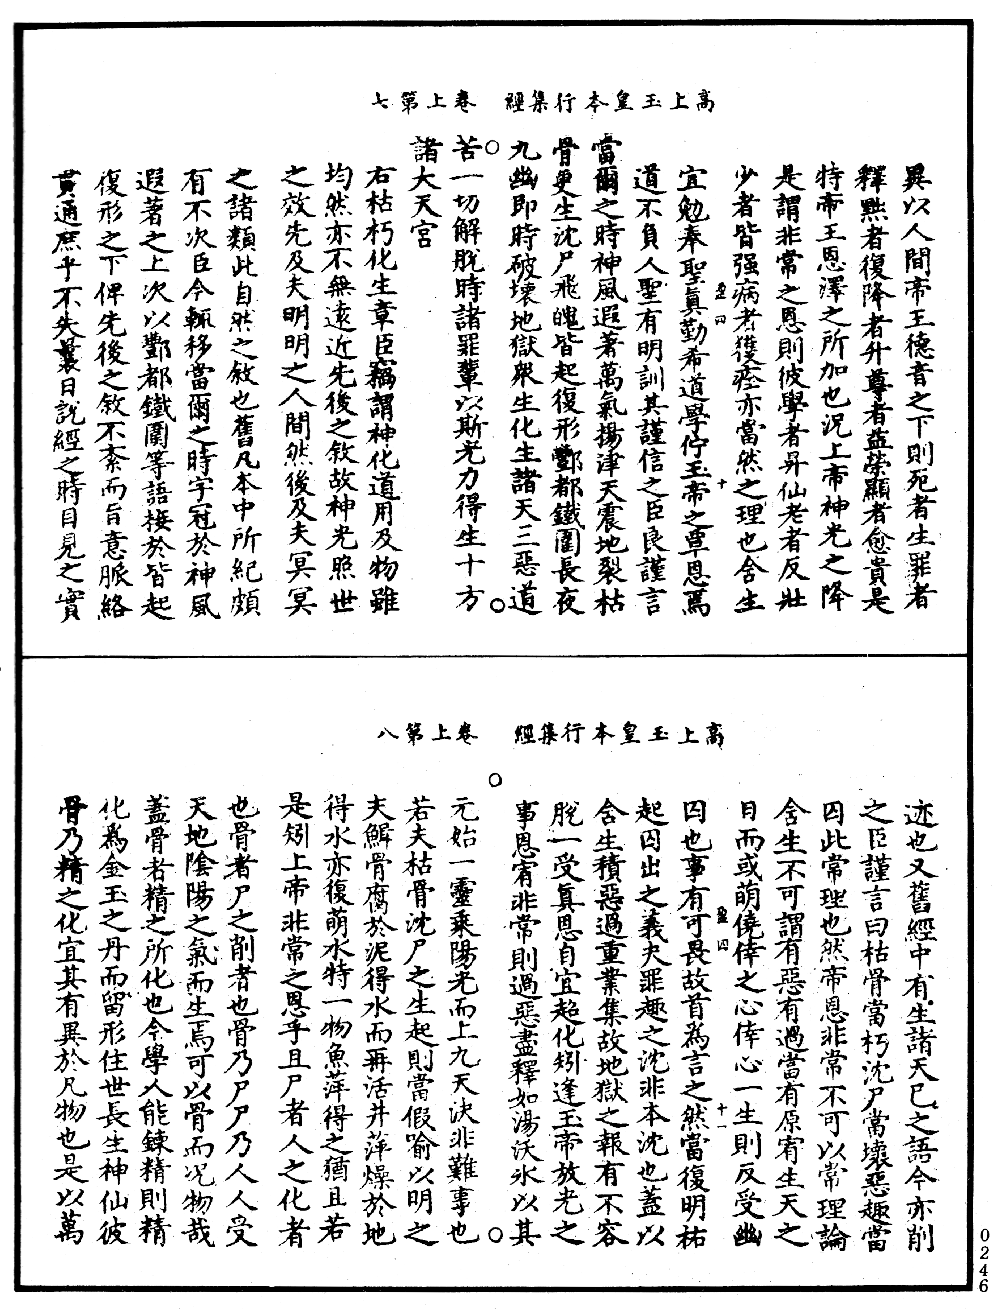 高上玉皇本行集經　卷上第七
異以人間帝王德音之下則死者生罪者
釋黜者復降者升尊者益榮顯者愈貴是
特帝王恩澤之所加也況上帝神光之降
是謂非常之恩則彼學者昇仙老者反壯
少者皆强病者獲痊亦當然之理也含生
宜勉奉聖眞勤希道學佇玉帝之覃恩焉
道不負人聖有明訓其謹信之臣良謹言
當爾之時神風遐著萬氣揚津天震地裂枯
骨更生沈尸飛魄皆起復形酆都鐵圍長夜
九幽即時破壞地獄衆生化生諸天三惡道
苦一切解脫時諸罪輩以斯光力得生十方
諸大天宮
右枯朽化生章臣竊謂神化道用及物雖
均然亦不無遠近先後之敘故神光照世
之效先及夫明明之人間然後及夫冥冥
之諸類此自然之敘也舊凡本中所紀頗
有不次臣今輒移當爾之時字冠於神風
遐著之上次以酆都鐵圍等語接於皆起
復形之下俾先後之敘不紊而旨意脈絡
貫通庶乎不失曩日說經之時目見之實
高上玉皇本行集經　卷上第八
迹也又舊經中有生諸天已之語今亦削
之臣謹言曰枯骨當朽沈尸常壞惡趣當
囚此常理也然帝恩非常不可以常理論
含生不可謂有惡有過當有原宥生天之
日而或萌僥倖之心倖心一生則反受幽
囚也事有可畏故首爲言之然當復明祐
起囚出之義夫罪趣之沈非本沈也蓋以
含生積惡過重業集故地獄之報有不容
脫一受眞恩自宜超化矧逢玉帝放光之
事恩宥非常則過惡盡釋如湯沃氷以其
元始一靈乘陽光而上九天決非難事也
若夫枯骨沈尸之生起則當假喻以明之
夫鰕骨腐於泥得水而再活井萍燥於地
得水亦復萌水特一物魚萍得之猶且若
是矧上帝非常之恩乎且尸者人之化者
也骨者尸之削者也骨乃尸尸乃人人受
天地陰陽之氣而生焉可以骨而况物哉
蓋骨者精之所化也今學人能鍊精則精
化爲金玉之丹而留形住世長生神仙彼
骨乃精之化宜其有異於凡物也是以萬
0246